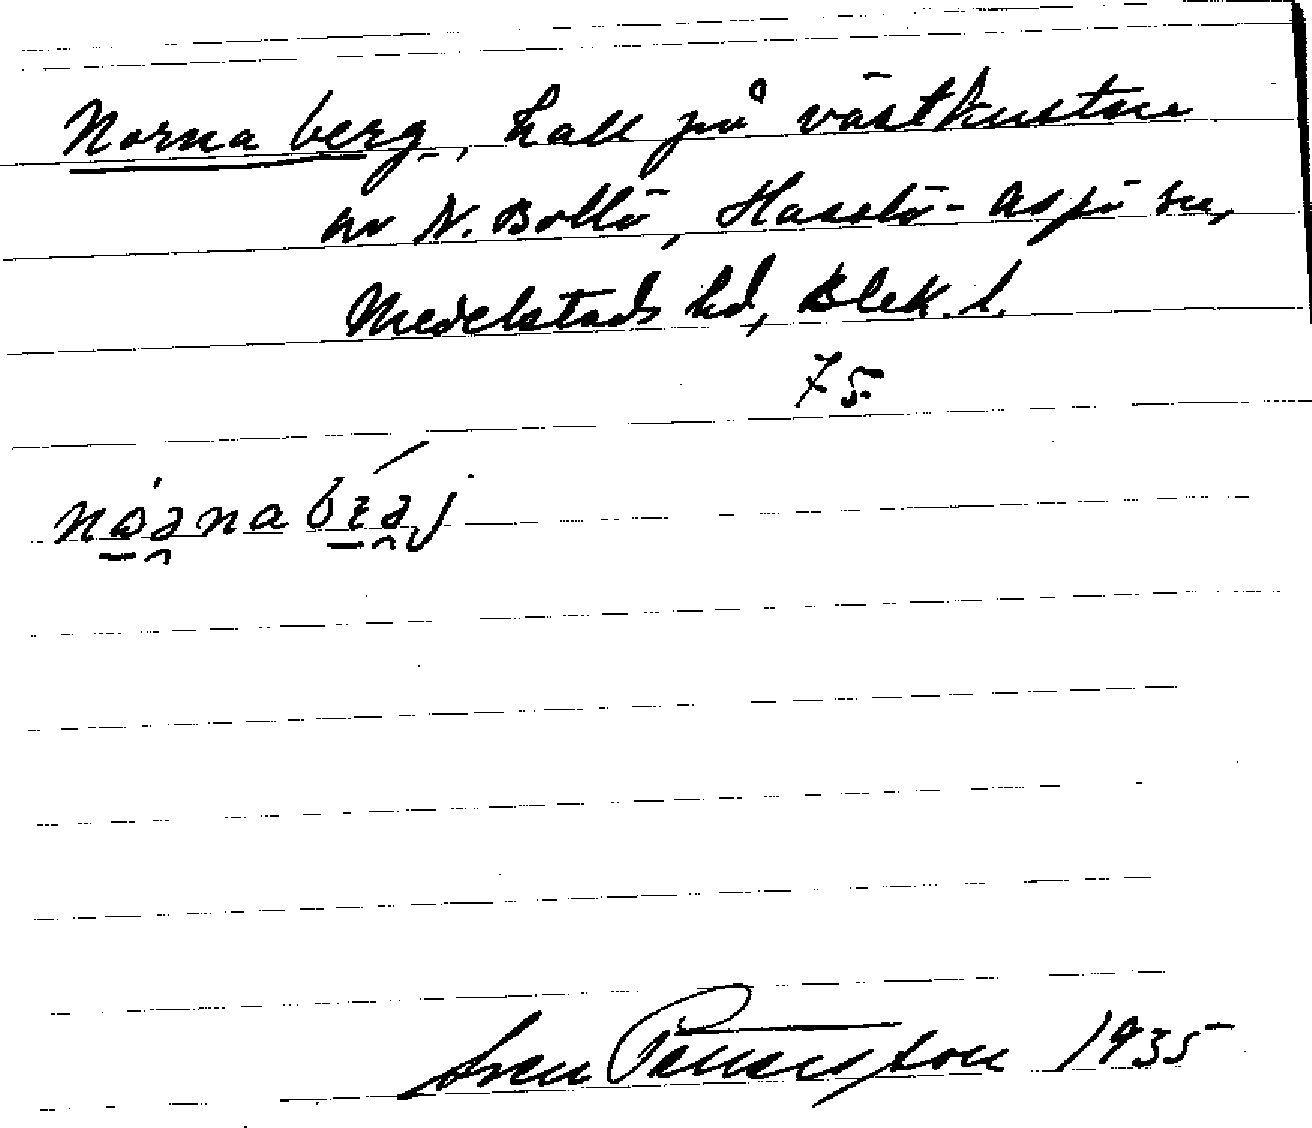 Norna berg, hall på västkusten
av N. Bollö, Hasslö-Aspö sn,
Medelstads hd, Blek. l.
75
Sven 1935